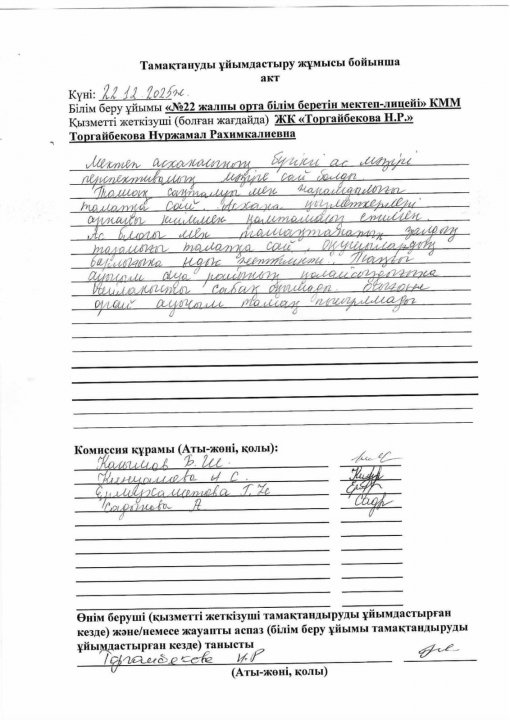 Тамақтануды ұйымдастыру жұмысы бойынша
акт
Күні: 22.12.2025ж.
Білім беру ұйымы «№22 жалпы орта білім беретін мектеп-лицейі» КММ
Қызметті жеткізуші (болған жағдайда) ЖК «Торгайбекова Н.Р.»
Торгайбекова Нуржамал Рахимкалиевна
Мектеп асханасының бүгінгі ас мәзірі
перспективалық мәзірге сай болды.
Тамақ сақталуы мен жарамдылығы
талапқа сай. Асхана қызметкерлері
арнайы киіммен қамтамасыз етілген.
Ас блогы мен тамақтанатын залдың
тазалығы талапқа сай. Оқушылардың
барлығына жетеді.
ауысым ауа райының қолайсыздығына
байланысты сабақ болмады. Соған
орай ауысым тамақ пісірілмеді
Комиссия құрамы (Аты-жөні, қолы):
Касымов Б.Ш.
А С.
Ермухаметова Г.
Садыкова А Садр
Өнім беруші (қызметті жеткізуші тамақтандыруды ұйымдастырған
кезде) және/немесе жауапты аспаз (білім беру ұйымы тамақтандыруды
ұйымдастырған кезде) танысты
Торгайбекова Н.Р
(Аты-жөні, қолы)